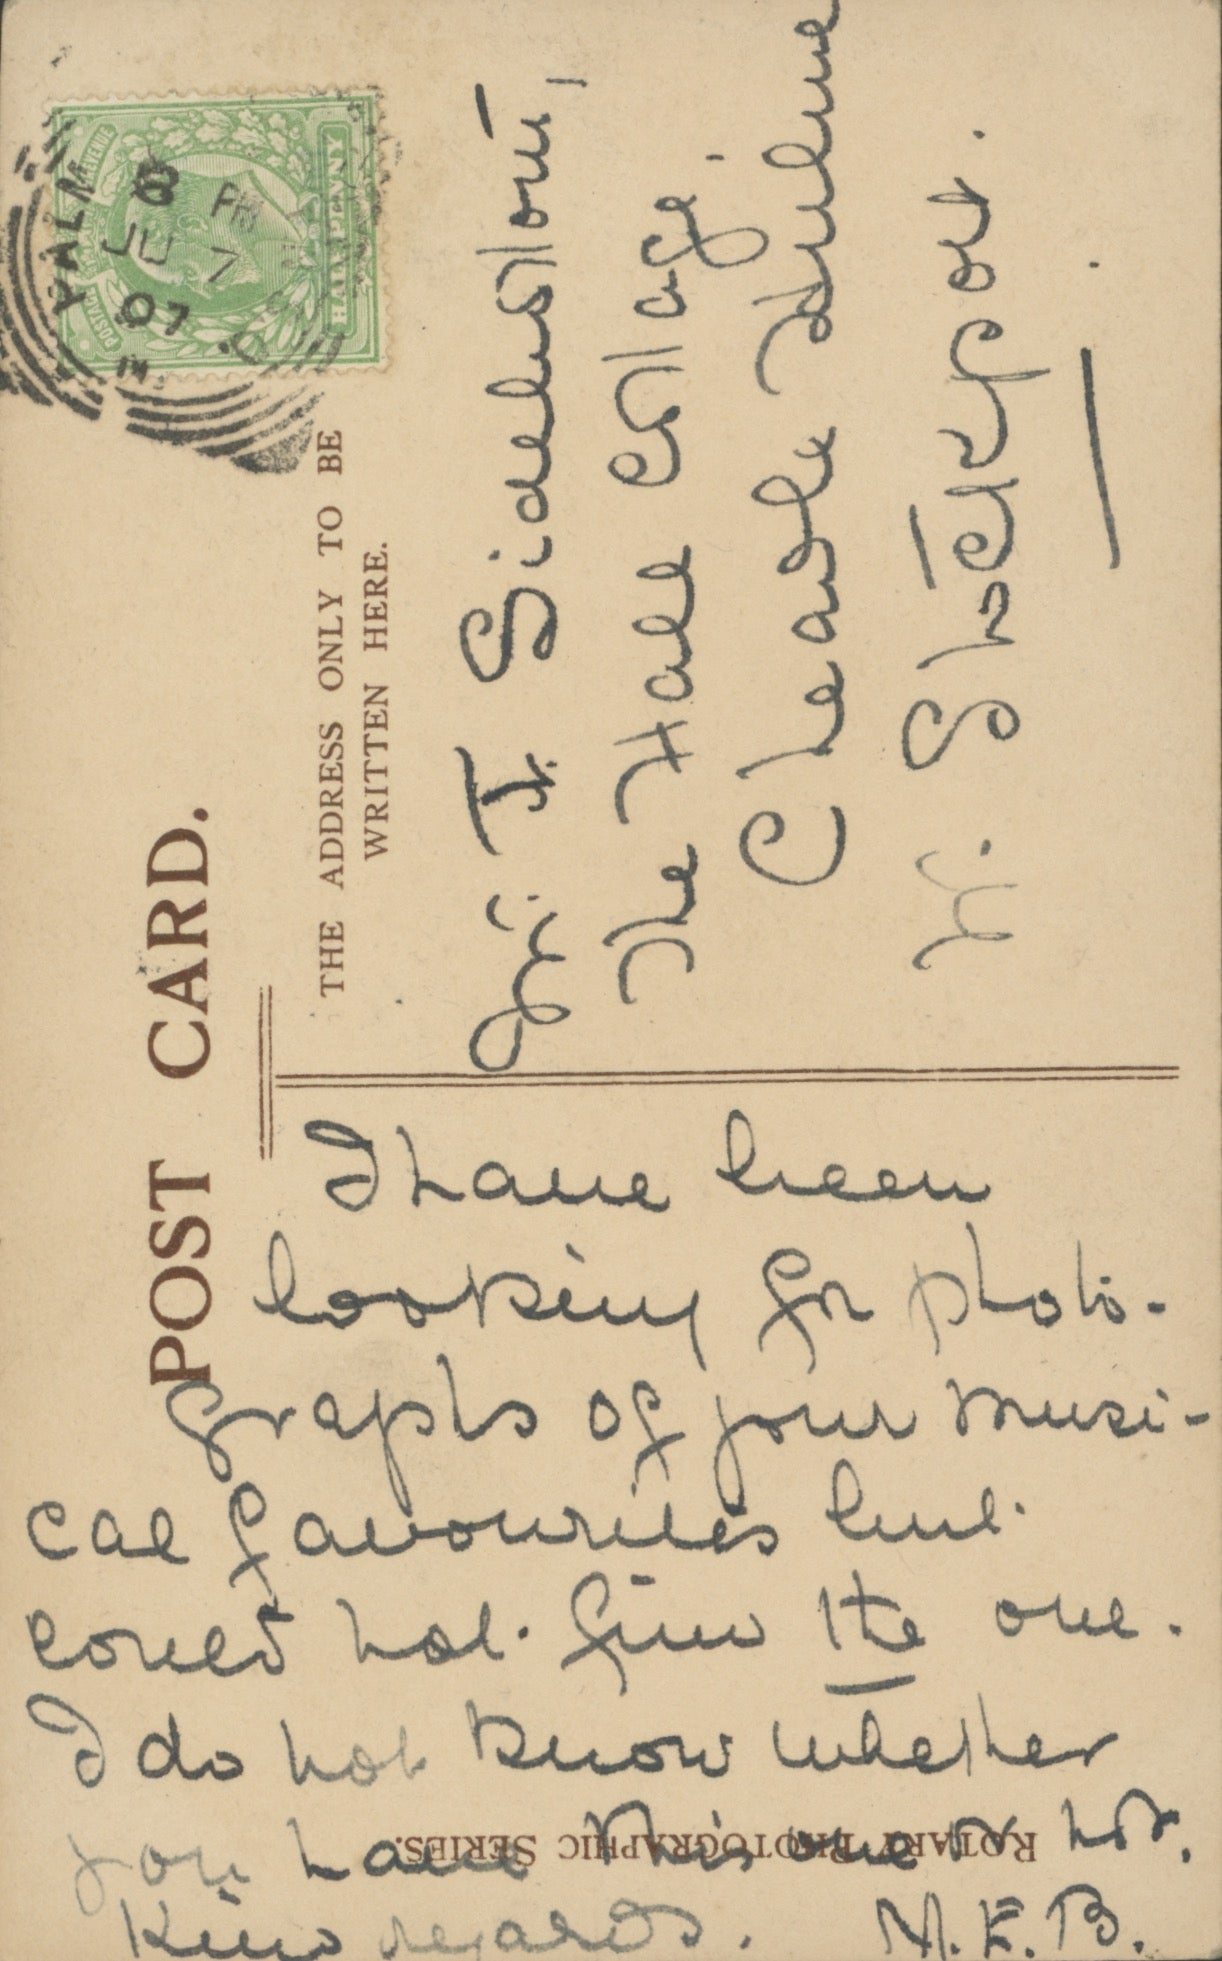 POST CARD.
THE ADDRESS ONLY TO BE
WRITTEN HERE.
HALFPENNY
JU 7
07
Sidebottom,
The Hall Cottage.
Cheadle Hulme
Nr. Stockport.
I have been
looking for photo-
graphs of your musi-
cal favourites but
could not find the one.
I do not know whether
you have this one or not.
Kind regards. M.E.B.
ROTARY PHOTOGRAPHIC SERIES.